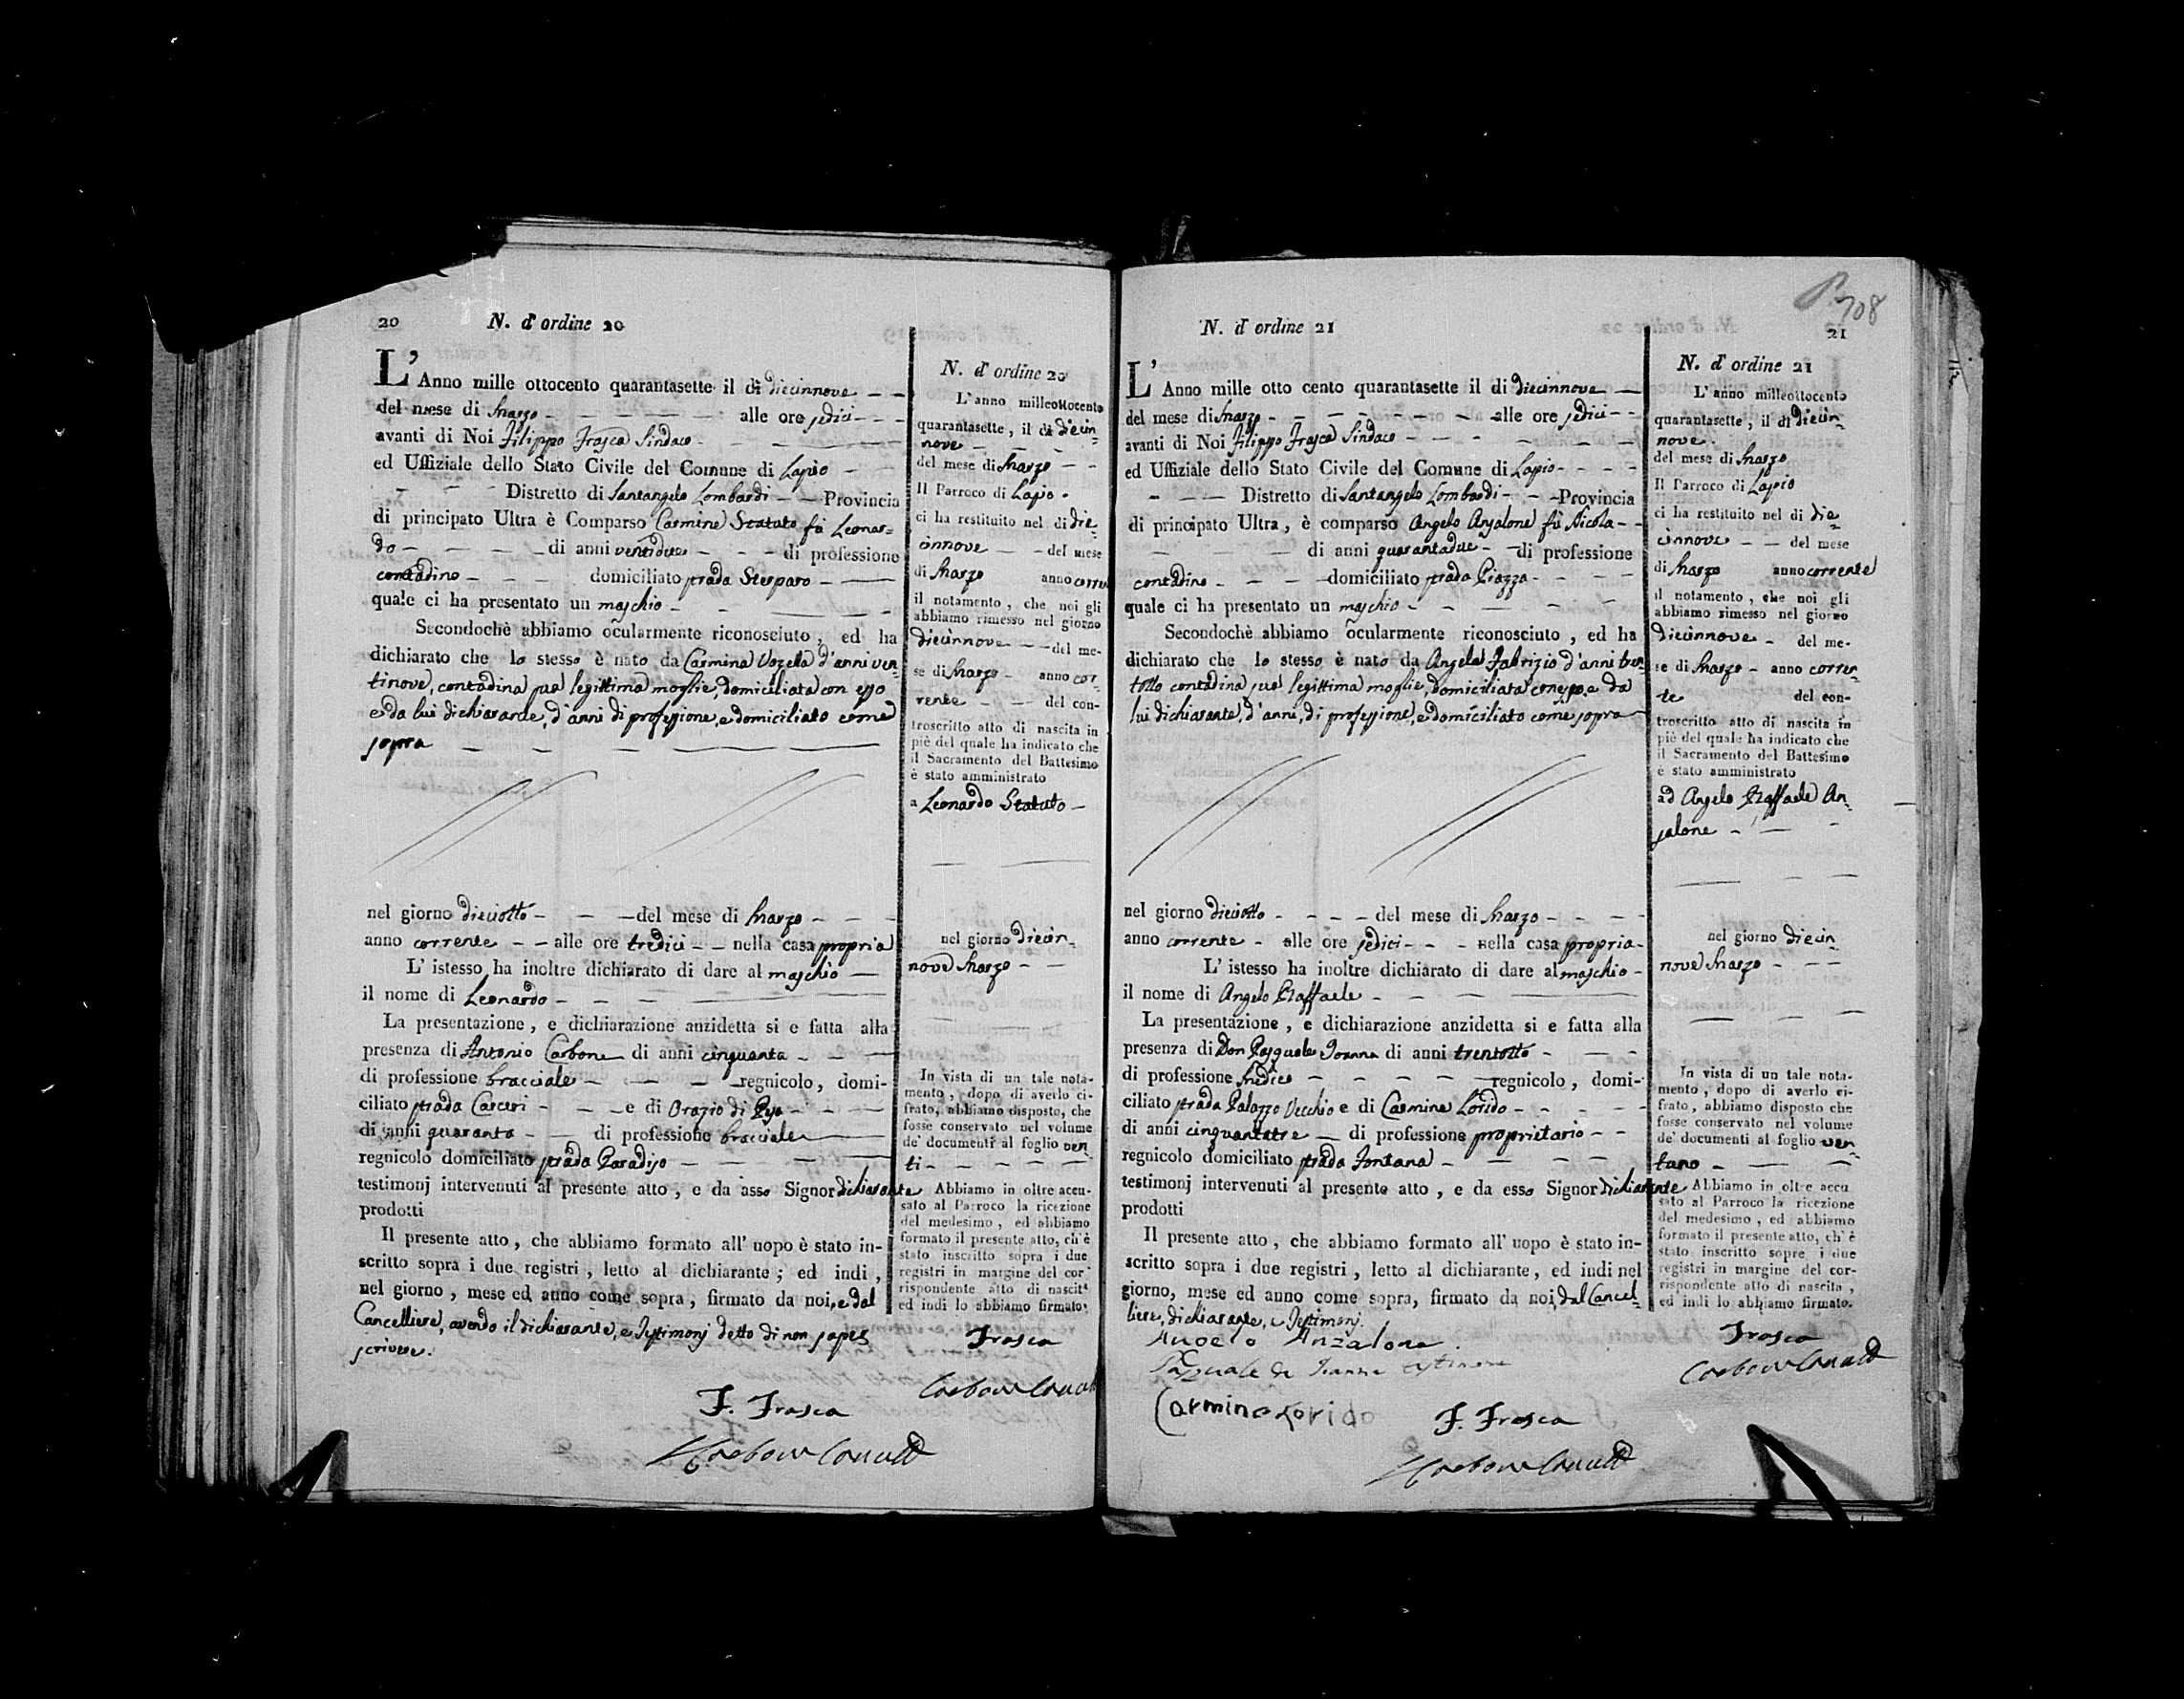 20 N. d'ordine 20
L'Anno mille ottocento quarantasette il di diecinnove
del mese di Marzo alle ore sedici
avanti di Noi Filippo Frasca Sindaco
ed Uffiziale dello Stato Civile del Comune di Lapio
Distretto di Santangelo Lombardi Provincia
di principato Ultra è Comparso Carmine Statuto fù Leonar=
do di anni ventidue di professione
contadino domiciliato strada
quale ci ha presentato un maschio
Secondochè abbiamo ocularmente riconosciuto, ed ha
dichiarato che lo stesso è nato da Carmina Vozella d'anni ven
tinove, contadina sua legittima moglie, domiciliata con esso
e da lui dichiarante, d'anni di professione, e domiciliato come
sopra
nel giorno dieciotto del mese di Marzo
anno corrente alle ore tredici nella casa propria
L'istesso ha inoltre dichiarato di dare al maschio
il nome di Leonardo
La presentazione, e dichiarazione anzidetta si e fatta alla
presenza di Antonio Carbone di anni cinquanta
di professione bracciale regnicolo, domi-
ciliato strada Carceri e di Orazio di
di anni quaranta di professione bracciale
regnicolo domiciliato strada Paradiso
testimonj intervenuti al presente atto, e da asso Signor dichiarante
prodotti
Il presente atto, che abbiamo formato all'uopo è stato in-
scritto sopra i due registri, letto al dichiarante; ed indi,
nel giorno, mese ed anno come sopra, firmato da noi, e dal
Cancelliere, avendo il dichiarante, e Testimonj detto di non saper
scrivere.
F. Frasca
N. d'ordine 20
L'anno milleottocento
quarantasette, il di diecin=
nove
del mese di Marzo
Il Parroco di Lapio
ci ha restituito nel di die=
cinnove del mese
di Marzo anno corre
il notamento, che noi gli
abbiamo rimesso nel giorno
diecinnove del me-
se di Marzo anno cor=
rente del con-
troscritto atto di nascita in
piè del quale ha indicato che
il Sacramento del Battesimo
è stato amministrato
a Leonardo Statuto
nel giorno diecin=
nove Marzo
In vista di un tale nota-
mento, dopo di averlo ci-
frato, abbiamo disposto, che
fosse conservato nel volume
de' documenti al foglio ven=
ti
Abbiamo in oltre accu-
sato al Parroco la ricezione
del medesimo, ed abbiamo
formato il presente atto, ch'è
stato inscritto sopra i due
registri in margine del cor
rispondente atto di nascita
ed indi lo abbiamo firmato.
Frasca
708
N. d'ordine 21 21
L'Anno mille otto cento quarantasette il di diecinnove
del mese di Marzo alle ore sedici
avanti di Noi Filippo Frasca Sindaco
ed Uffiziale dello Stato Civile del Comune di Lapio
Distretto di Santangelo Lombardi Provincia
di principato Ultra, è comparso Angelo Anzalone fù Nicola
di anni quarantadue di professione
contadino domiciliato strada Piazza
quale ci ha presentato un maschio
Secondochè abbiamo ocularmente riconosciuto, ed ha
dichiarato che lo stesso è nato da Angela Fabrizio d'anni tren
totto contadina sua legittima moglie, domiciliata con esso, e da
lui dichiarante, d'anni, di professione, e domiciliato come sopra
nel giorno dieciotto del mese di Marzo
anno corrente alle ore sedici nella casa propria
L'istesso ha inoltre dichiarato di dare al maschio
il nome di Angelo Raffaele
La presentazione, e dichiarazione anzidetta si e fatta alla
presenza di Don Pasquale Joanna di anni trentotto
di professione Medico regnicolo, domi-
ciliato strada Palazzo Vecchio e di Carmine Lorido
di anni cinquantatre di professione proprietario
regnicolo domiciliato strada Fontana
testimonj intervenuti al presente atto, e da esso Signor dichiarante
prodotti
Il presente atto, che abbiamo formato all'uopo è stato in-
scritto sopra i due registri, letto al dichiarante, ed indi nel
giorno, mese ed anno come sopra, firmato da noi, dal Cancel=
liere, dichiarante, e Testimonj.
Angelo Anzalone
Pasquale de Joanna testimone
Carmine Lorido
F. Frasca
N. d'ordine 21
L'anno milleottocento
quarantasette, il di diecin=
nove.
del mese di Marzo
Il Parroco di Lapio
ci ha restituito nel di die=
cinnove del mese
di Marzo anno corrente
il notamento, che noi gli
abbiamo rimesso nel giorno
diecinnove del me-
se di Marzo anno corren=
te del con-
troscritto atto di nascita in
piè del quale ha indicato che
il Sacramento del Battesimo
è stato amministrato
ad Angelo Raffaele An=
zalone
nel giorno diecin=
nove Marzo
In vista di un tale nota-
mento, dopo di averlo ci-
frato, abbiamo disposto che
fosse conservato nel volume
de' documenti al foglio ven=
tuno
Abbiamo in oltre accu
sato al Parroco la ricezione
del medesimo, ed abbiamo
formato il presente atto, ch'è
stato inscritto sopre i due
registri in margine del cor-
rispondente atto di nascita,
ed indi lo abbiamo firmato.
Frasca